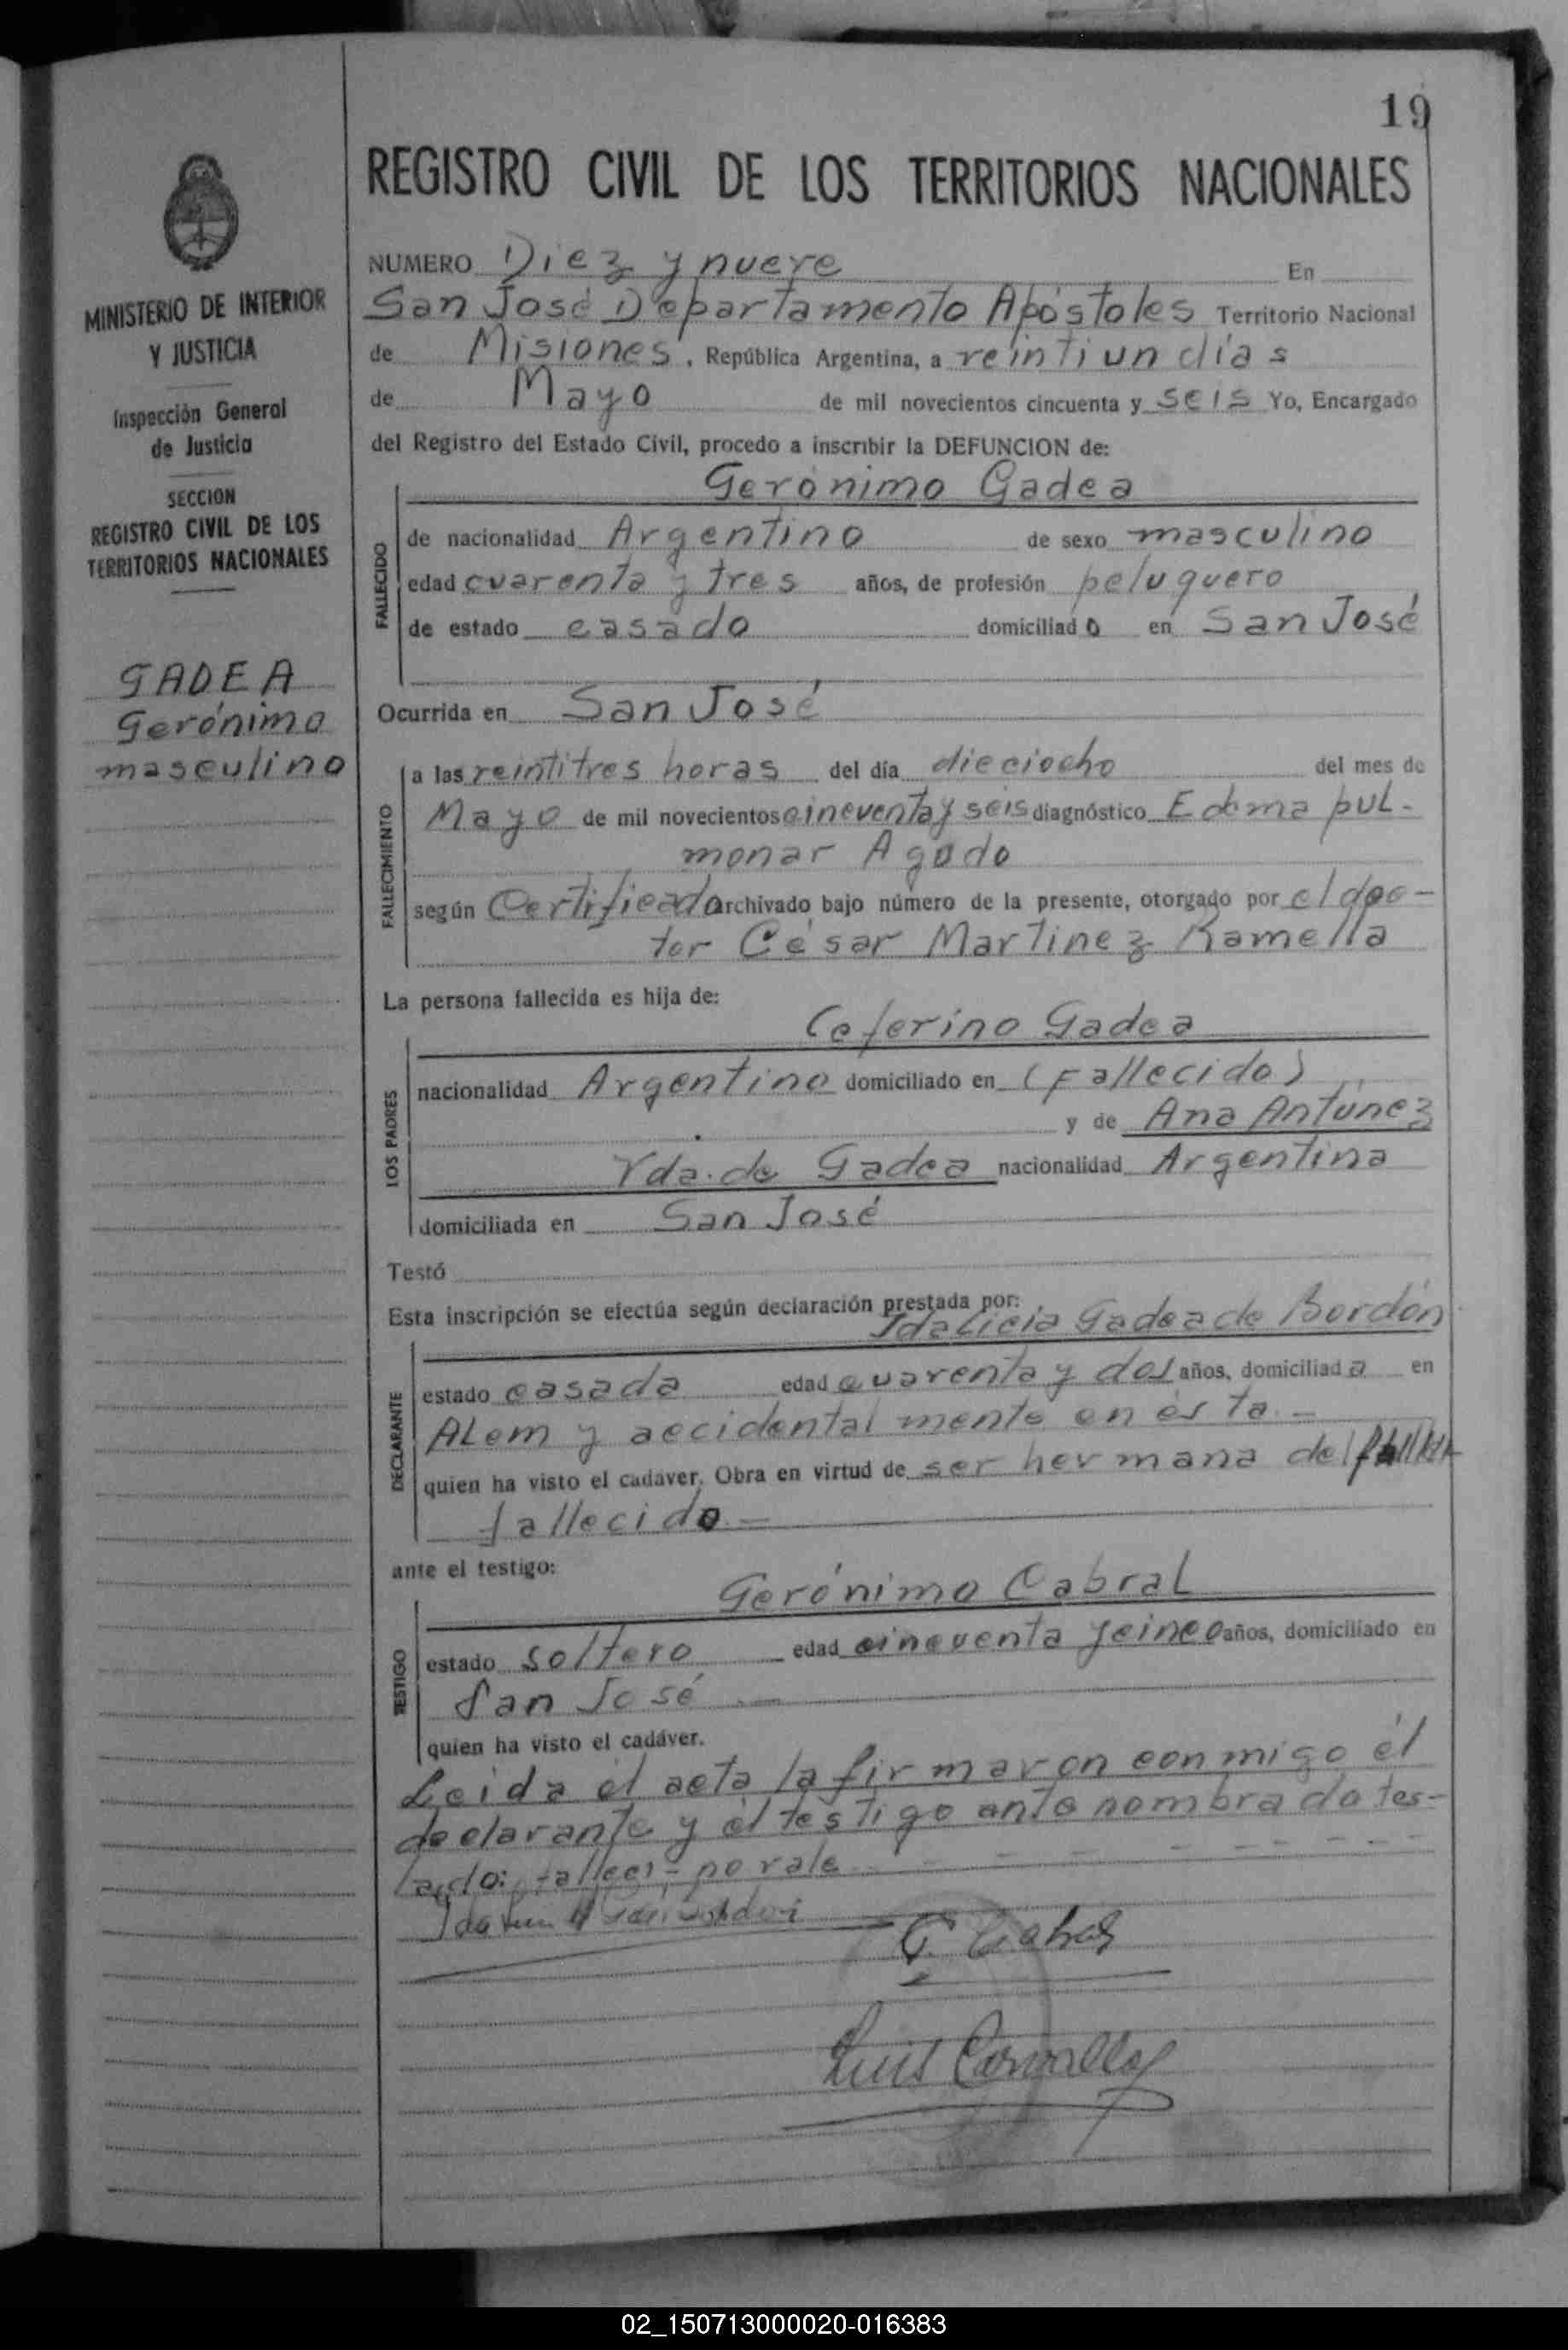 19
REGISTRO CIVIL DE LOS TERRITORIOS NACIONALES
MINISTERIO DE INTERIOR
Y JUSTICIA
Inspección General
de Justicia
SECCION
REGISTRO CIVIL DE LOS
TERRITORIOS NACIONALES
GADEA
Gerónimo
masculino
NUMERO Diez y nueve En
San José Departamento Apóstoles Territorio Nacional
de Misiones, República Argentina, a veintiun días
de Mayo de mil novecientos cincuenta y seis Yo, Encargado
del Registro del Estado Civil, procedo a inscribir la DEFUNCION de:
Gerónimo Gadea
FALLECIDO
de nacionalidad Argentino de sexo masculino
edad cuarenta y tres años, de profesión peluquero
de estado casado domiciliado en San José
Ocurrida en San José
FALLECIMIENTO
a las veintitres horas del día dieciocho del mes de
Mayo de mil novecientos cincuenta y seis diagnóstico Edema pul-
monar Agudo
según Certificado archivado bajo número de la presente, otorgado por el doc-
tor César Martinez Ramella
La persona fallecida es hija de:
Ceferino Gadea
LOS PADRES
nacionalidad Argentino domiciliado en (Fallecido)
y de Ana Antúnez
Vda. de Gadea nacionalidad Argentina
domiciliada en San José
Testó
Esta inscripción se efectúa según declaración prestada por:
Idalicia Gadea de Bordón
DECLARANTE
estado casada edad cuarenta y dos años, domiciliada en
ALem y accidentalmente en ésta.-
quien ha visto el cadáver. Obra en virtud de ser hermana del
fallecido.-
ante el testigo:
Gerónimo Cabral
TESTIGO
estado soltero edad cincuenta y cinco años, domiciliado en
San José.-
quien ha visto el cadáver.
Leida el acta la firmaron conmigo él
declarante y él testigo ante nombrado tes-
tado: falleci- no vale
G. Cabral
Luis Carvallo
02_150713000020-016383